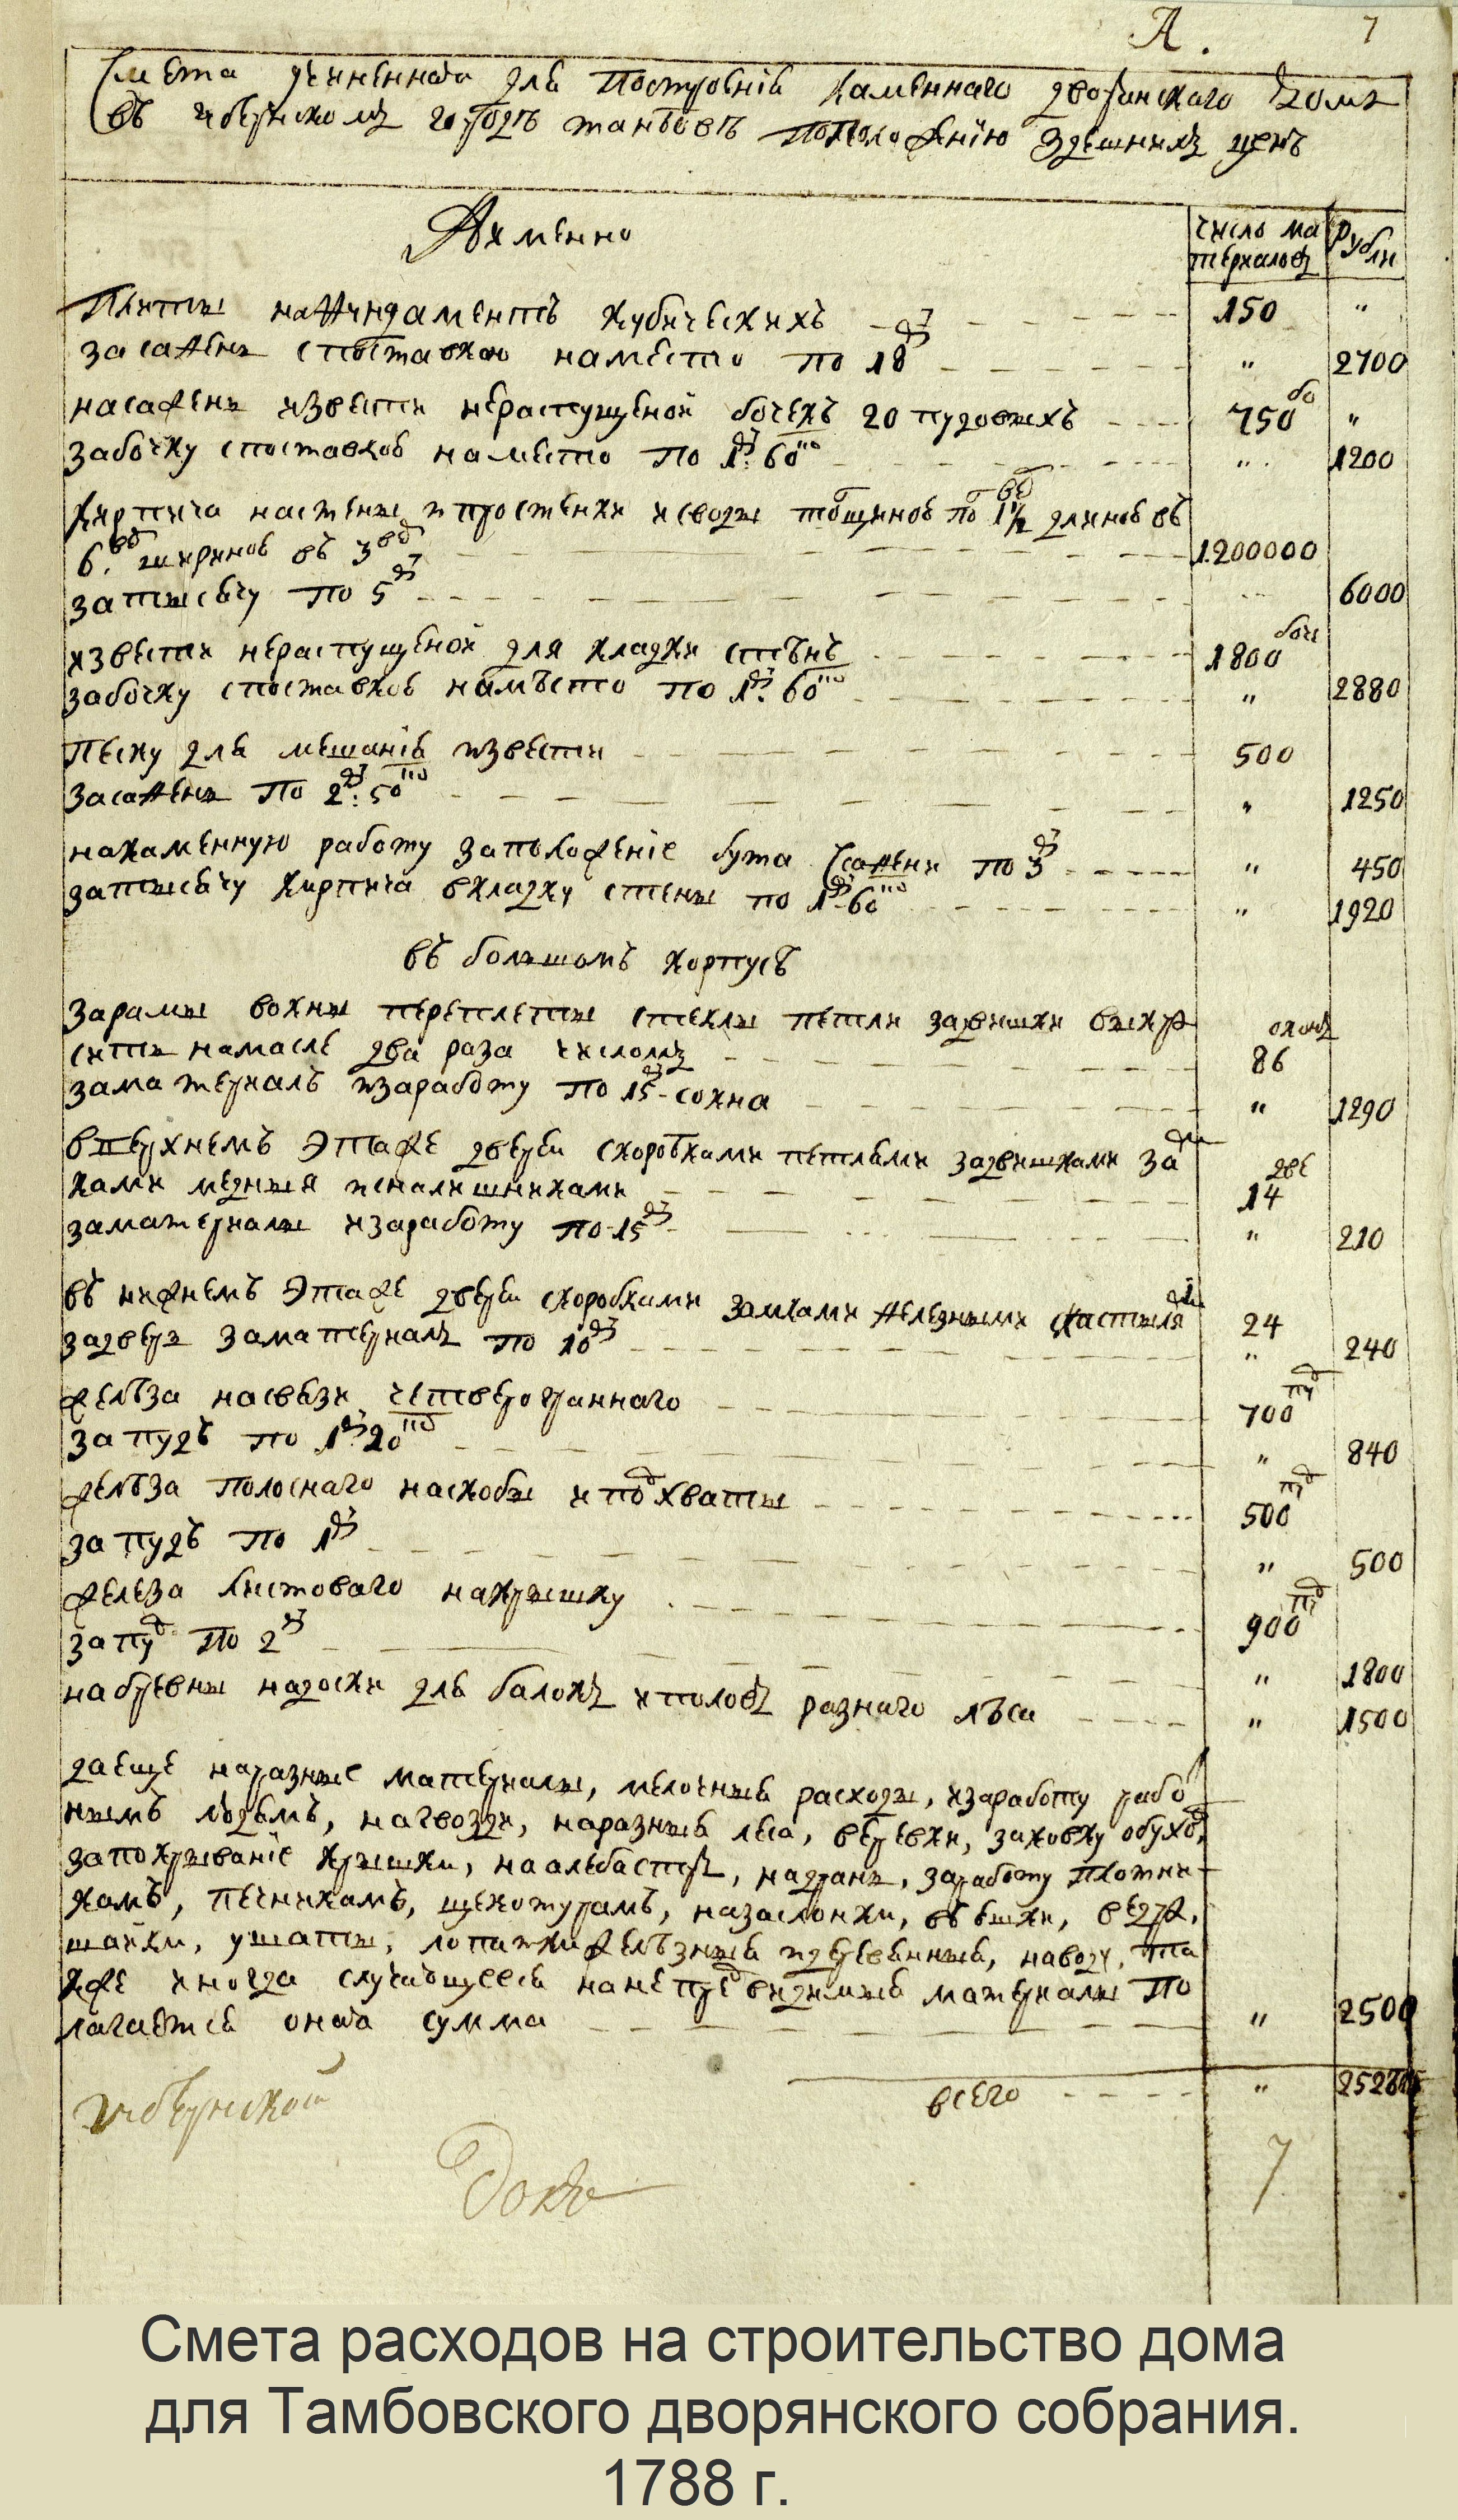 А. 7
Смета учиненная для построенія каменнаго дворянскаго дому
въ губернскомъ городѣ танбовѣ поположенію здешнихъ ценъ
Аименно
число ма
териаловъ
Рубли
Плиты нафундаментъ кубическихъ 150 "
засажень споставкою наместо по 18 " 2700
насажень извести нераспущеной бочекъ 20 пудовыхъ 750 бо "
забочку споставкою наместо по 1: 60 " 1200
Кирпича настены ипростенки исводы толщиною по 1½ длиною въ
6. ширяною въ 3 1200000
затысячу по 5 6000
извести нераспущеной для кладки стѣнъ 1800 боч
забочку споставкою намѣсто по 1: 60 " 2880
песку для мешанія извести 500
засажень по 2: 50 " 1250
накаменную работу заположеніе бута Ссажени по 3 " 450
затысячу кирпича вкладку стены по 1-60 " 1920
въ большомъ корпусѣ
зарамы вокны переплеты стеклы петли задвишки выкра
сить намасле два раза числомъ оконъ 86
заматериалъ изаработу по 15 - сокна " 1290
вверхнемъ Этаже дверей скоробками петлями задвишками за
ками медныя иналишниками две 14
заматериалы изаработу по 15 " 210
въ нижнемъ Этаже дверей скоробками замками железными 24
задверь заматериалъ по 10 " 240
желѣза насвязи четверограннаго 700 пуд
запудъ по 1 20 " 840
желѣза полоснаго наскобы иподхваты 500 пуд
запудъ по 1 " 500
железа листоваго накрышку 900 пуд
запуд по 2 " 1800
набревны надоски для балокъ иполовъ разнаго лѣса " 1500
даеще наразные материалы, мелочныя расходы, изаработу рабо
нымъ людямъ, нагвозди, наразныя леса, веревки, заковку обухов,
запокрываніе крышки, наалебастръ, надрань, заработу плотни
камъ, печникамъ, щекотурамъ, назаслонки, вьюшки, ведра,
шайки, ушаты, лопатки желѣзныя идеревянныя, наводу, та
кже иногда случающееся нанепредвидимыя материалы по
лагается оная сумма " 2500
всего "
губернской
7
Смета расходов на строительство дома
для Тамбовского дворянского собрания.
1788 г.